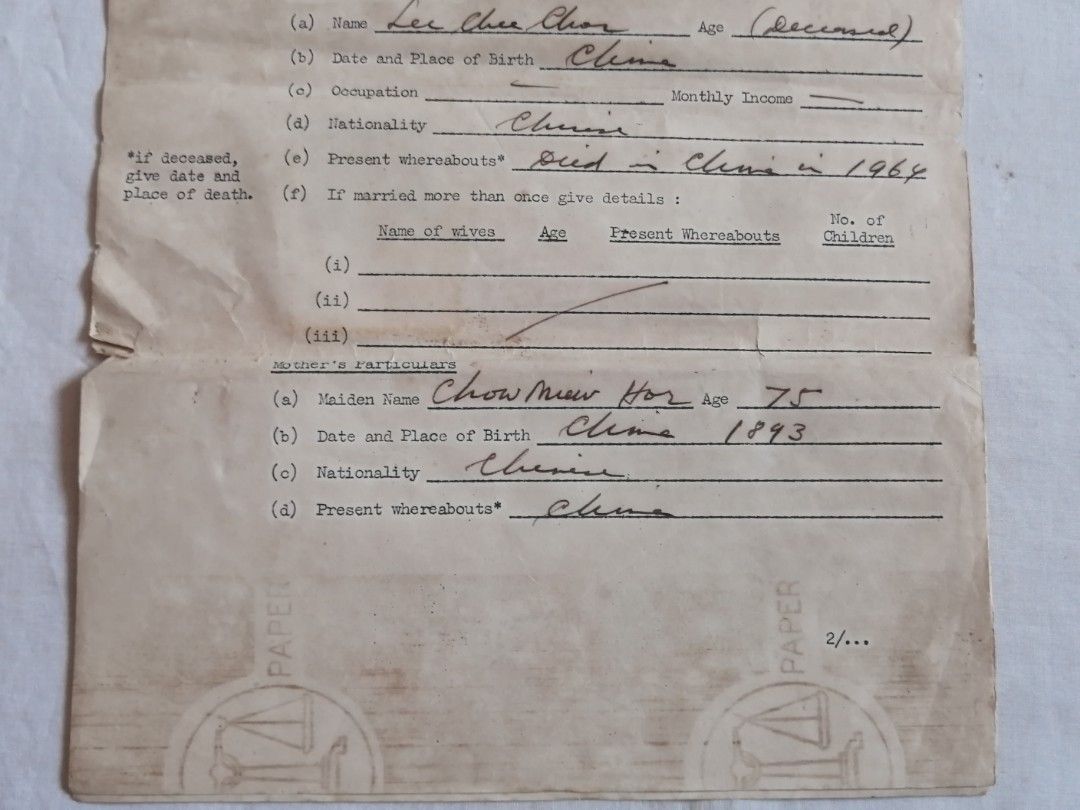 (a) Name Lee Chee Chor Age (Deceased)
(b) Date and Place of Birth China
(c) Occupation — Monthly Income —
(d) Nationality Chinese
*if deceased, give date and place of death.
(e) Present whereabouts* Died in China in 1964
(f) If married more than once give details :
Name of wives Age Present Whereabouts No. of Children
(i)
(ii)
(iii)
Mother's Particulars
(a) Maiden Name Chow Hor Age 75
(b) Date and Place of Birth China 1893
(c) Nationality Chinese
(d) Present whereabouts* China
2/...
PAPER PAPER